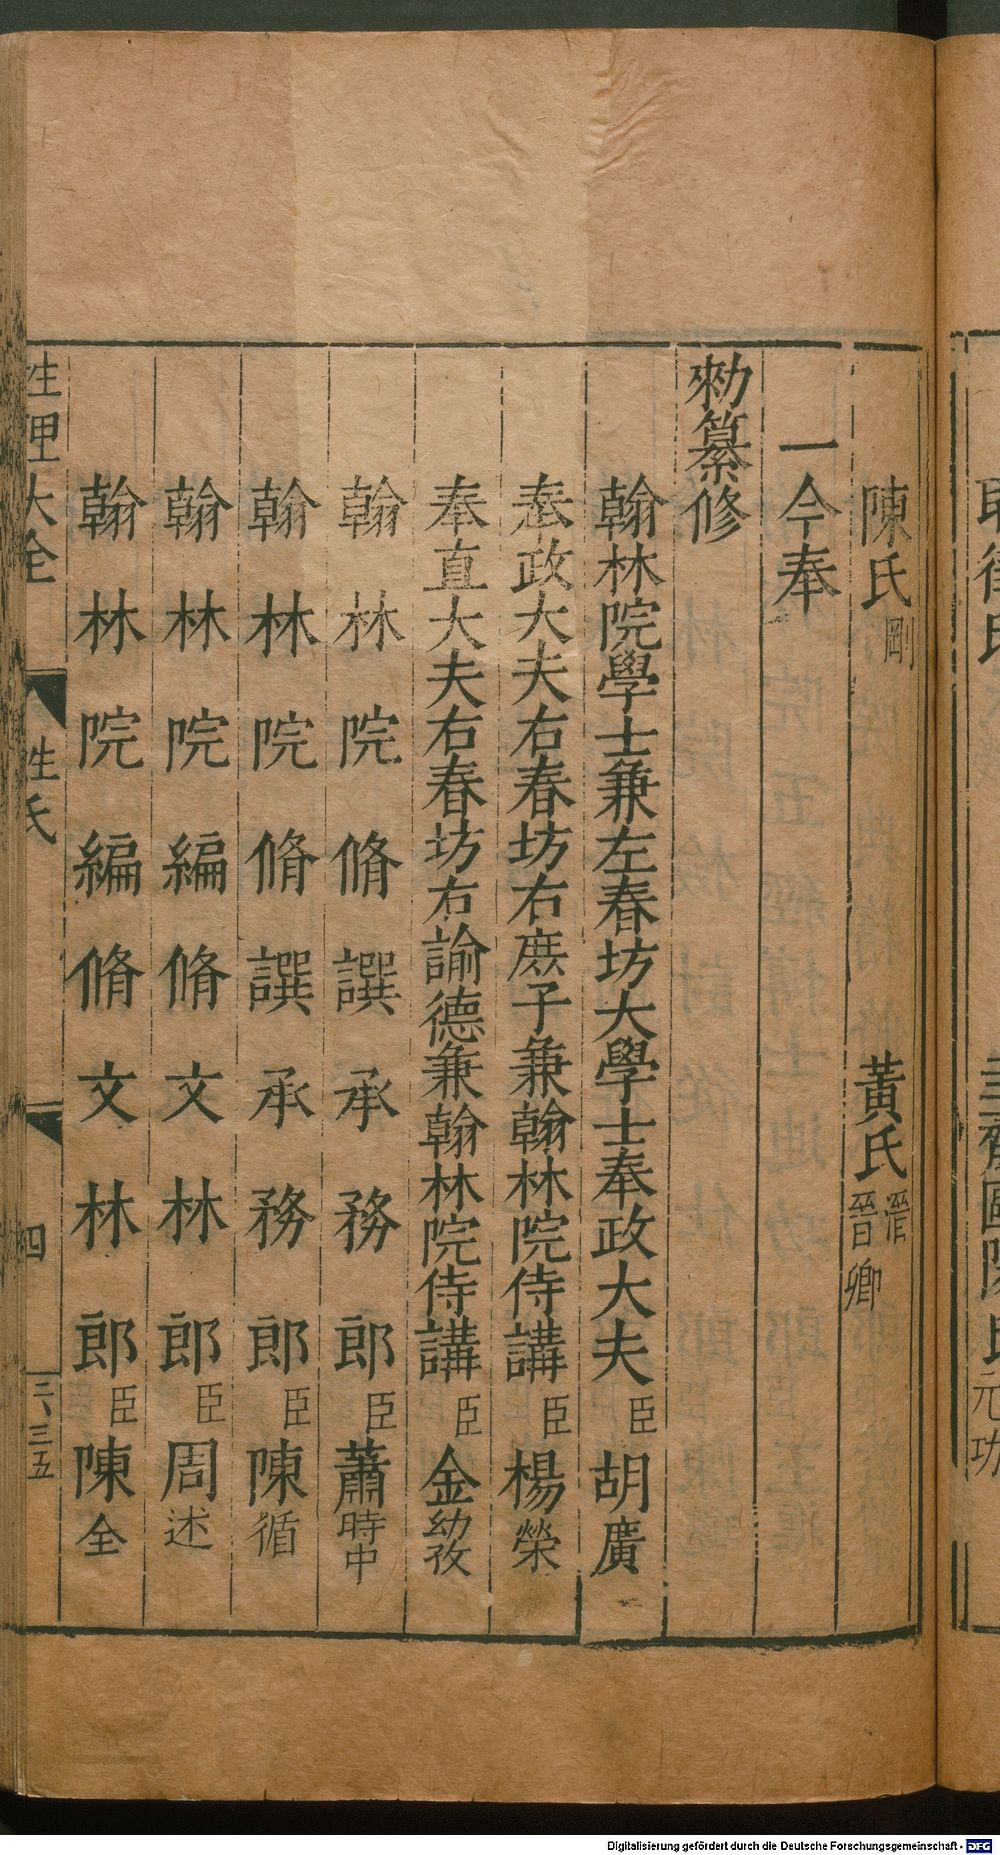 陳氏剛 黃氏溍晉卿
一今奉
勑纂修
翰林院學士兼左春坊大學士奉政大夫臣胡廣
奉政大夫右春坊右庶子兼翰林院侍講臣楊榮
奉直大夫右春坊右諭德兼翰林院侍講臣金幼孜
翰林院脩譔承務郎臣蕭時中
翰林院脩譔承務郎臣陳循
翰林院編脩文林郎臣周述
翰林院編脩文林郎臣陳全
性理大全 姓氏 四 三、三五
Digitalisierung gefördert durch die Deutsche Forschungsgemeinschaft - DFG